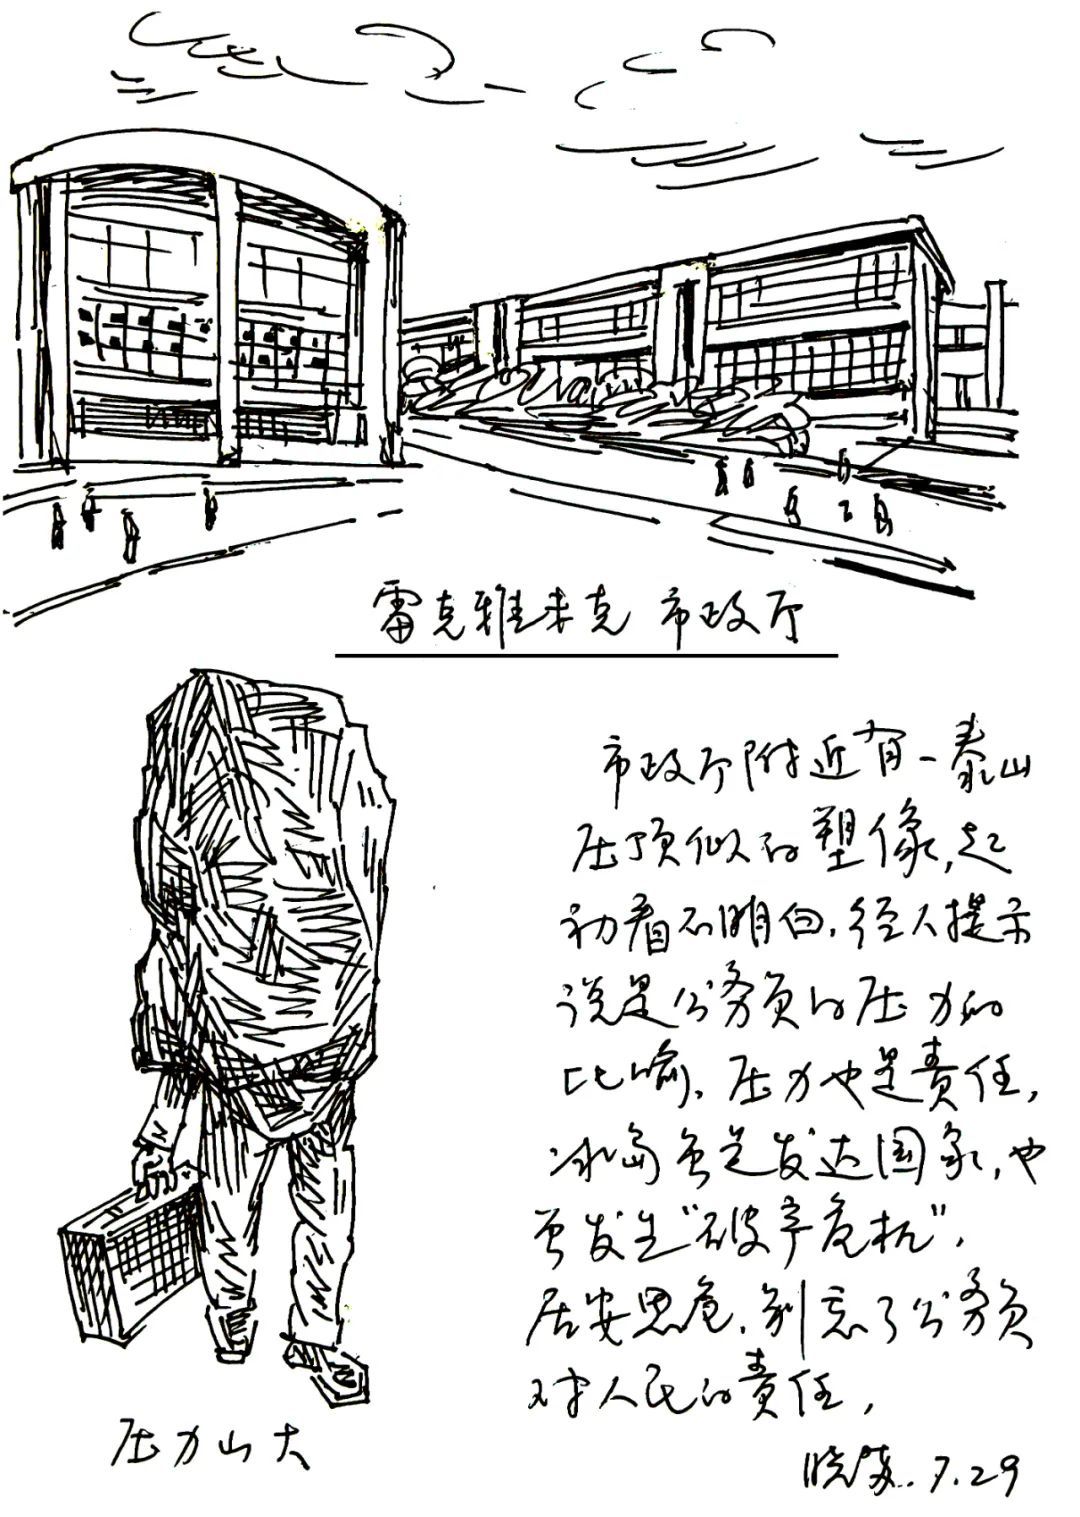 雷克雅未克 市政厅
市政厅附近有一泰山
压顶似的塑像,起
初看不明白,经人提示
说是公务员的压力的
比喻,压力也是责任,
冰岛虽是发达国家,也
曾发生“破产危机”,
居安思危,别忘了公务员
对人民的责任,
压力山大
晓 .7.29